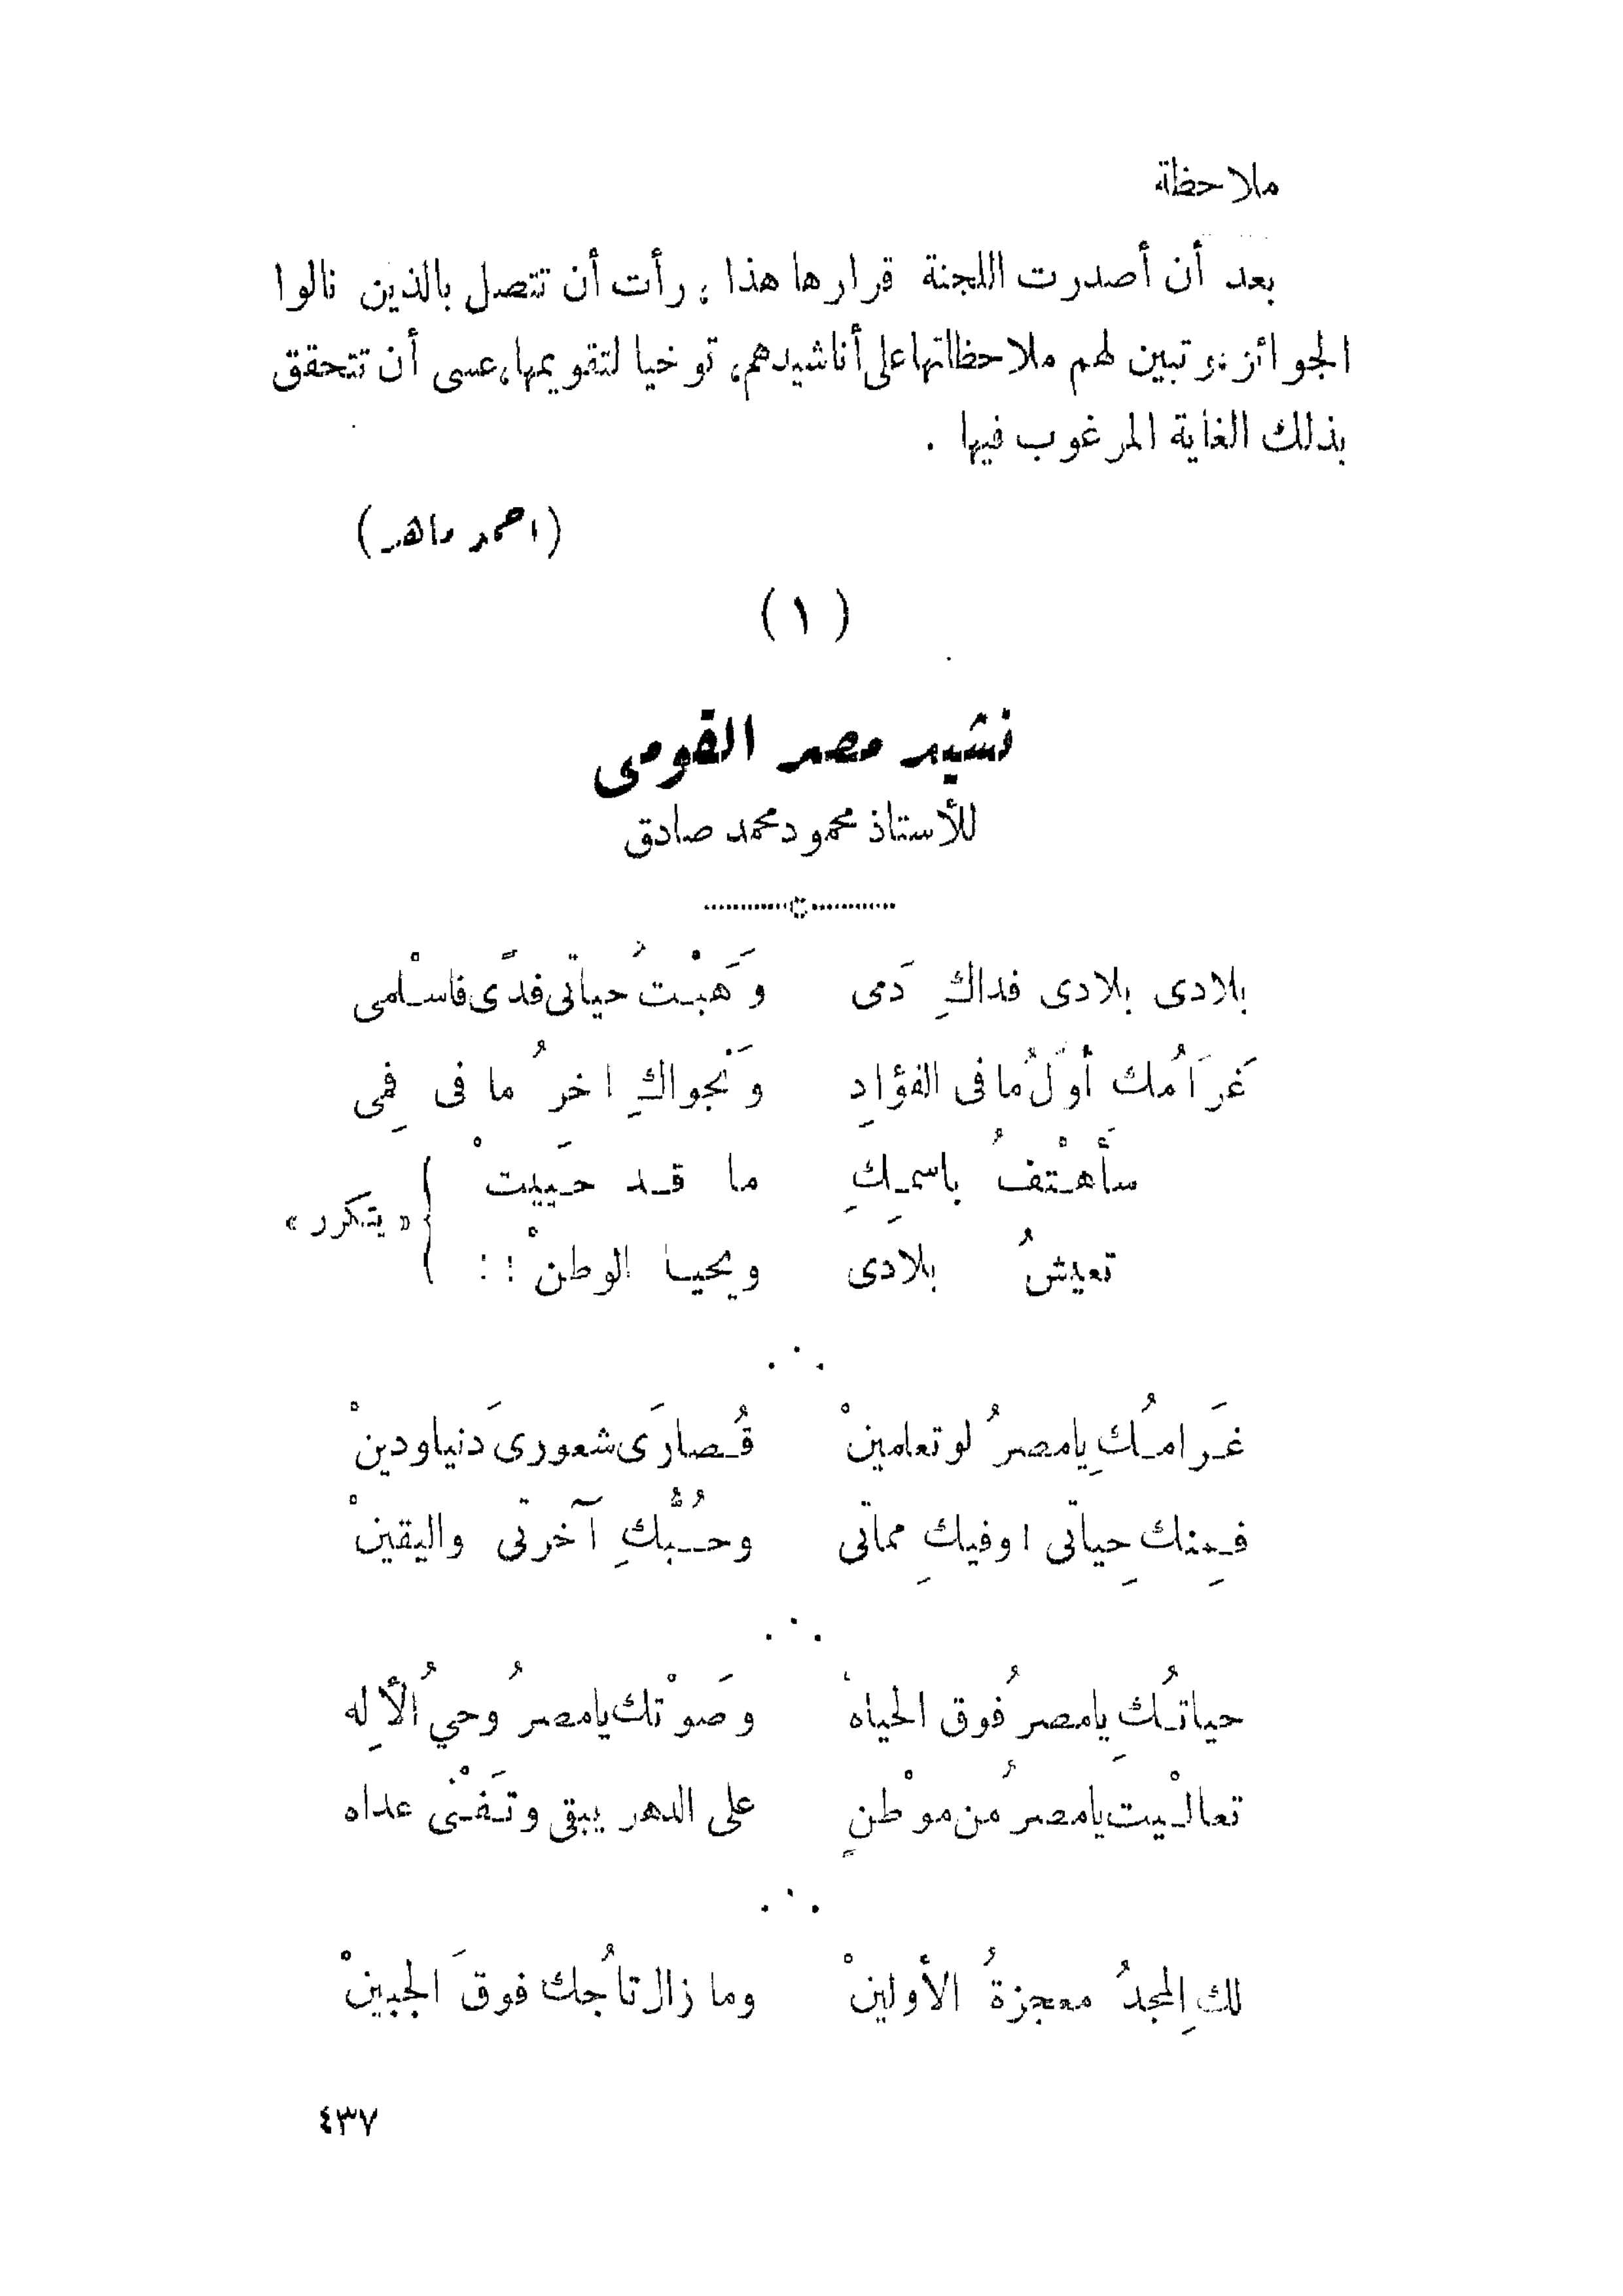 ملاحظة
بعد أن أصدرت اللجنة قرارها هذا ، رأت أن تتصل بالذين نالوا
الجوائز ، وتبين لهم ملاحظاتها على أناشيدهم، توخيا لتقويمها، عسى أن تتحقق
بذلك الغاية المرغوب فيها .
(احمد ماهر)
(١)
نشيد مصر القومى
للأستاذ محمود محمد صادق
بلادى بلادى فداكِ دَمى وَهَبْتُ حياتى فدًى فاسْلمى
غَرَامُك أوَلُ ما فى الفؤادِ وَنْجواكِ اخرُ ما فى فِمى
سأَهْتفُ باسمِكِ ما قد حَييتْ
«يتكرر»
تعيشُ بلادى ويحيا الوطنْ ! :
غَرامُكِ يامصرُ لو تعلمينْ قُصارَى شعورى دَنياودينْ
فمِنكِ حياتى ! وفيكِ مماتى وحُبُّكِ آخرتى واليقينْ
حياتُكِ يامصرُ فوق الحياهْ وصَوْتك يامصرُ وحيُ الألِه
تعالْيت يامصرُ من موْطنٍ على الدهر يبقى وتَفْنى عداه
لكِ المجدُ معجزةُ الأولينْ وما زال تاُجك فوقَ الجبينْ
٤٣٧